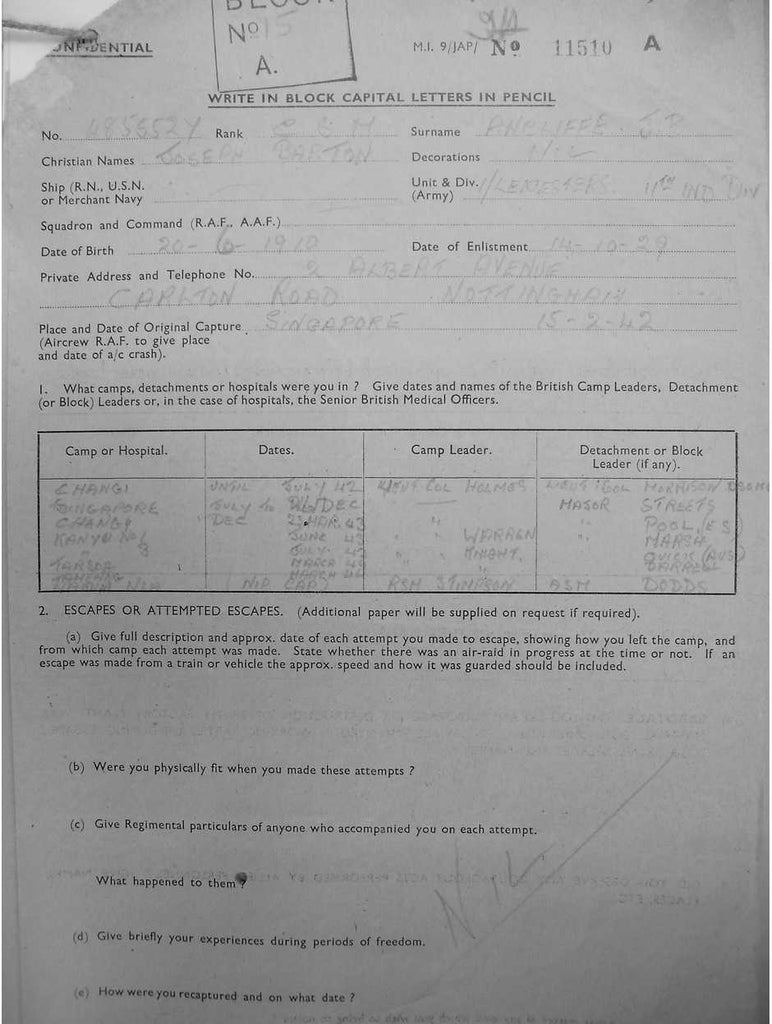 BLOCK
No 15
A.
CONFIDENTIAL
M.I. 9/JAP/ No 11510 A
WRITE IN BLOCK CAPITAL LETTERS IN PENCIL
No. Rank C S M Surname ANCLIFFE J.B.
Christian Names JOSEPH BARTON Decorations NIL
Ship (R.N., U.S.N. or Merchant Navy
Unit & Div. (Army) 1/LEICESTERS 11TH IND DIV
Squadron and Command (R.A.F., A.A.F.)
Date of Birth 20-6-1910 Date of Enlistment 14-10-29
Private Address and Telephone No. 2 ALBERT AVENUE
CARLTON ROAD NOTTINGHAM
Place and Date of Original Capture SINGAPORE 15-2-42
(Aircrew R.A.F. to give place
and date of a/c crash).
1. What camps, detachments or hospitals were you in ? Give dates and names of the British Camp Leaders, Detachment
(or Block) Leaders or, in the case of hospitals, the Senior British Medical Officers.
Camp or Hospital. Dates. Camp Leader. Detachment or Block Leader (if any).
CHANGI UNTIL JULY 42 LIEUT COL HOLMES LIEUT COL MORRISON
SINGAPORE JULY to DEC MAJOR STREETS
CHANGI DEC 23 MAR 43 " "
KANYU JUNE 43 " WARREN " MARSH
3 JULY 43 " KNIGHT
TARSOA MARCH
(NIP CAP) RSM STIMPSON ASM DODDS
2. ESCAPES OR ATTEMPTED ESCAPES. (Additional paper will be supplied on request if required).
(a) Give full description and approx. date of each attempt you made to escape, showing how you left the camp, and
from which camp each attempt was made. State whether there was an air-raid in progress at the time or not. If an
escape was made from a train or vehicle the approx. speed and how it was guarded should be included.
(b) Were you physically fit when you made these attempts ?
(c) Give Regimental particulars of anyone who accompanied you on each attempt.
What happened to them ?
NIL
(d) Give briefly your experiences during periods of freedom.
(e) How were you recaptured and on what date ?